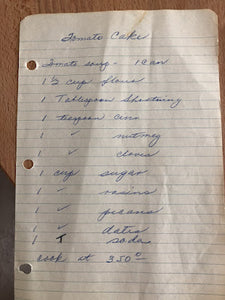 Tomato Cake
Tomato soup - 1 can
1 1/2 cup flour
1 Tablespoon Shortening
1 teaspoon cinn
1 " nutmeg
1 " cloves
1 cup sugar
1 " rasins
1 " pecans
1 " dates
1 T soda
cook at 350°